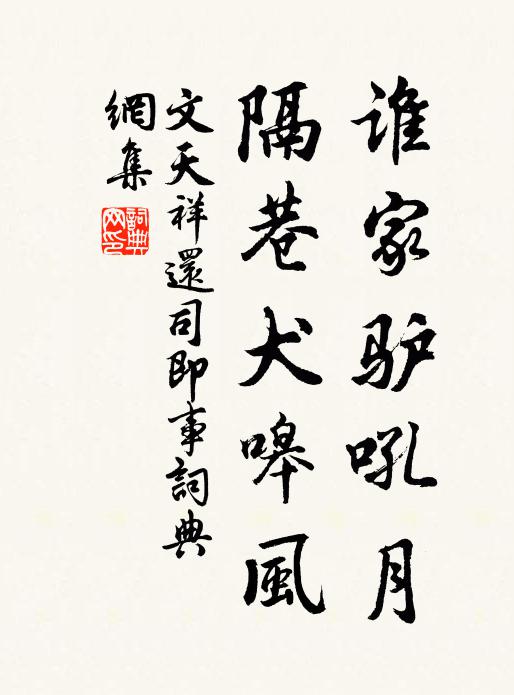 谁家驴吼月
隔巷犬嗥風
文天祥還司即事詞典
網集
詞典
网印